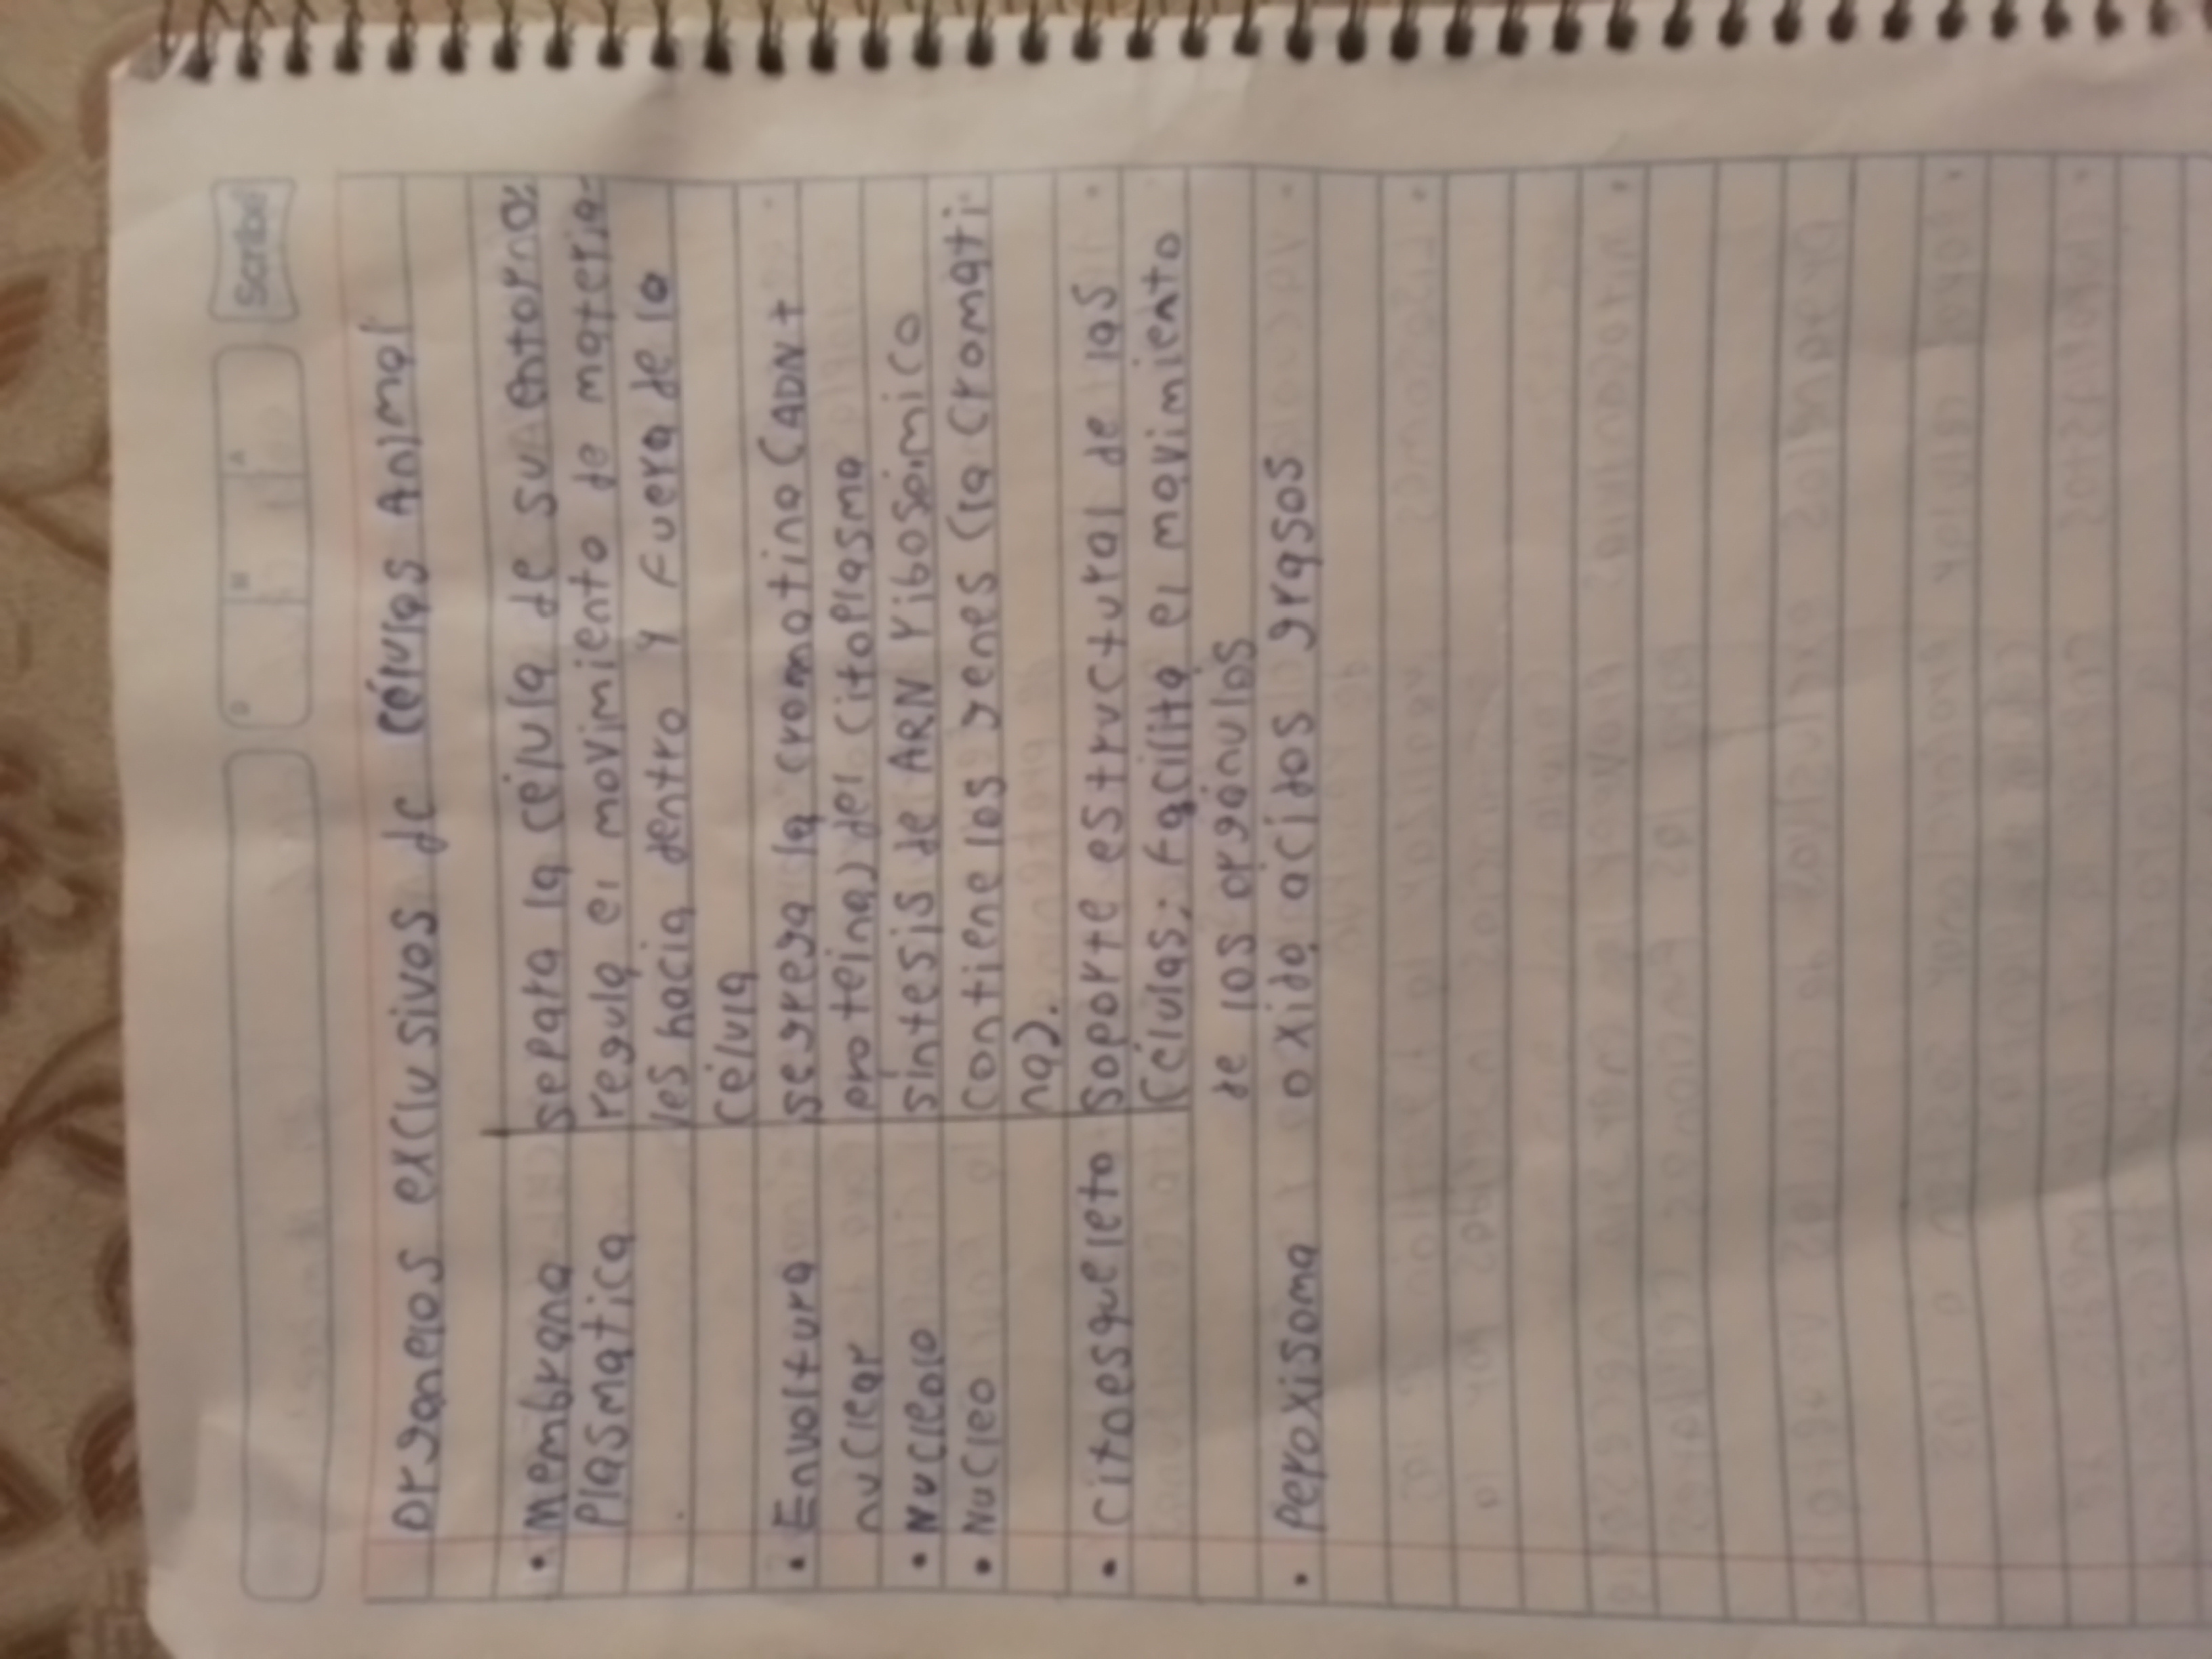 Scribe
D M A
Organelos exclusivos de células Animal
• Membrana separa la célula de su entorno;
Plasmatica regula el movimiento de materia-
les hacia dentro y fuera de la
célula
• Envoltura segrega la cromatina (ADN+
nuclear proteina) del citoplasma
• Nucleolo síntesis de ARN ribosomico
• Nucleo contiene los genes (la cromati
na).
• citoesqueleto soporte estructural de las
células; facilita el movimiento
de los orgánulos
• Peroxisoma oxida acidos grasos